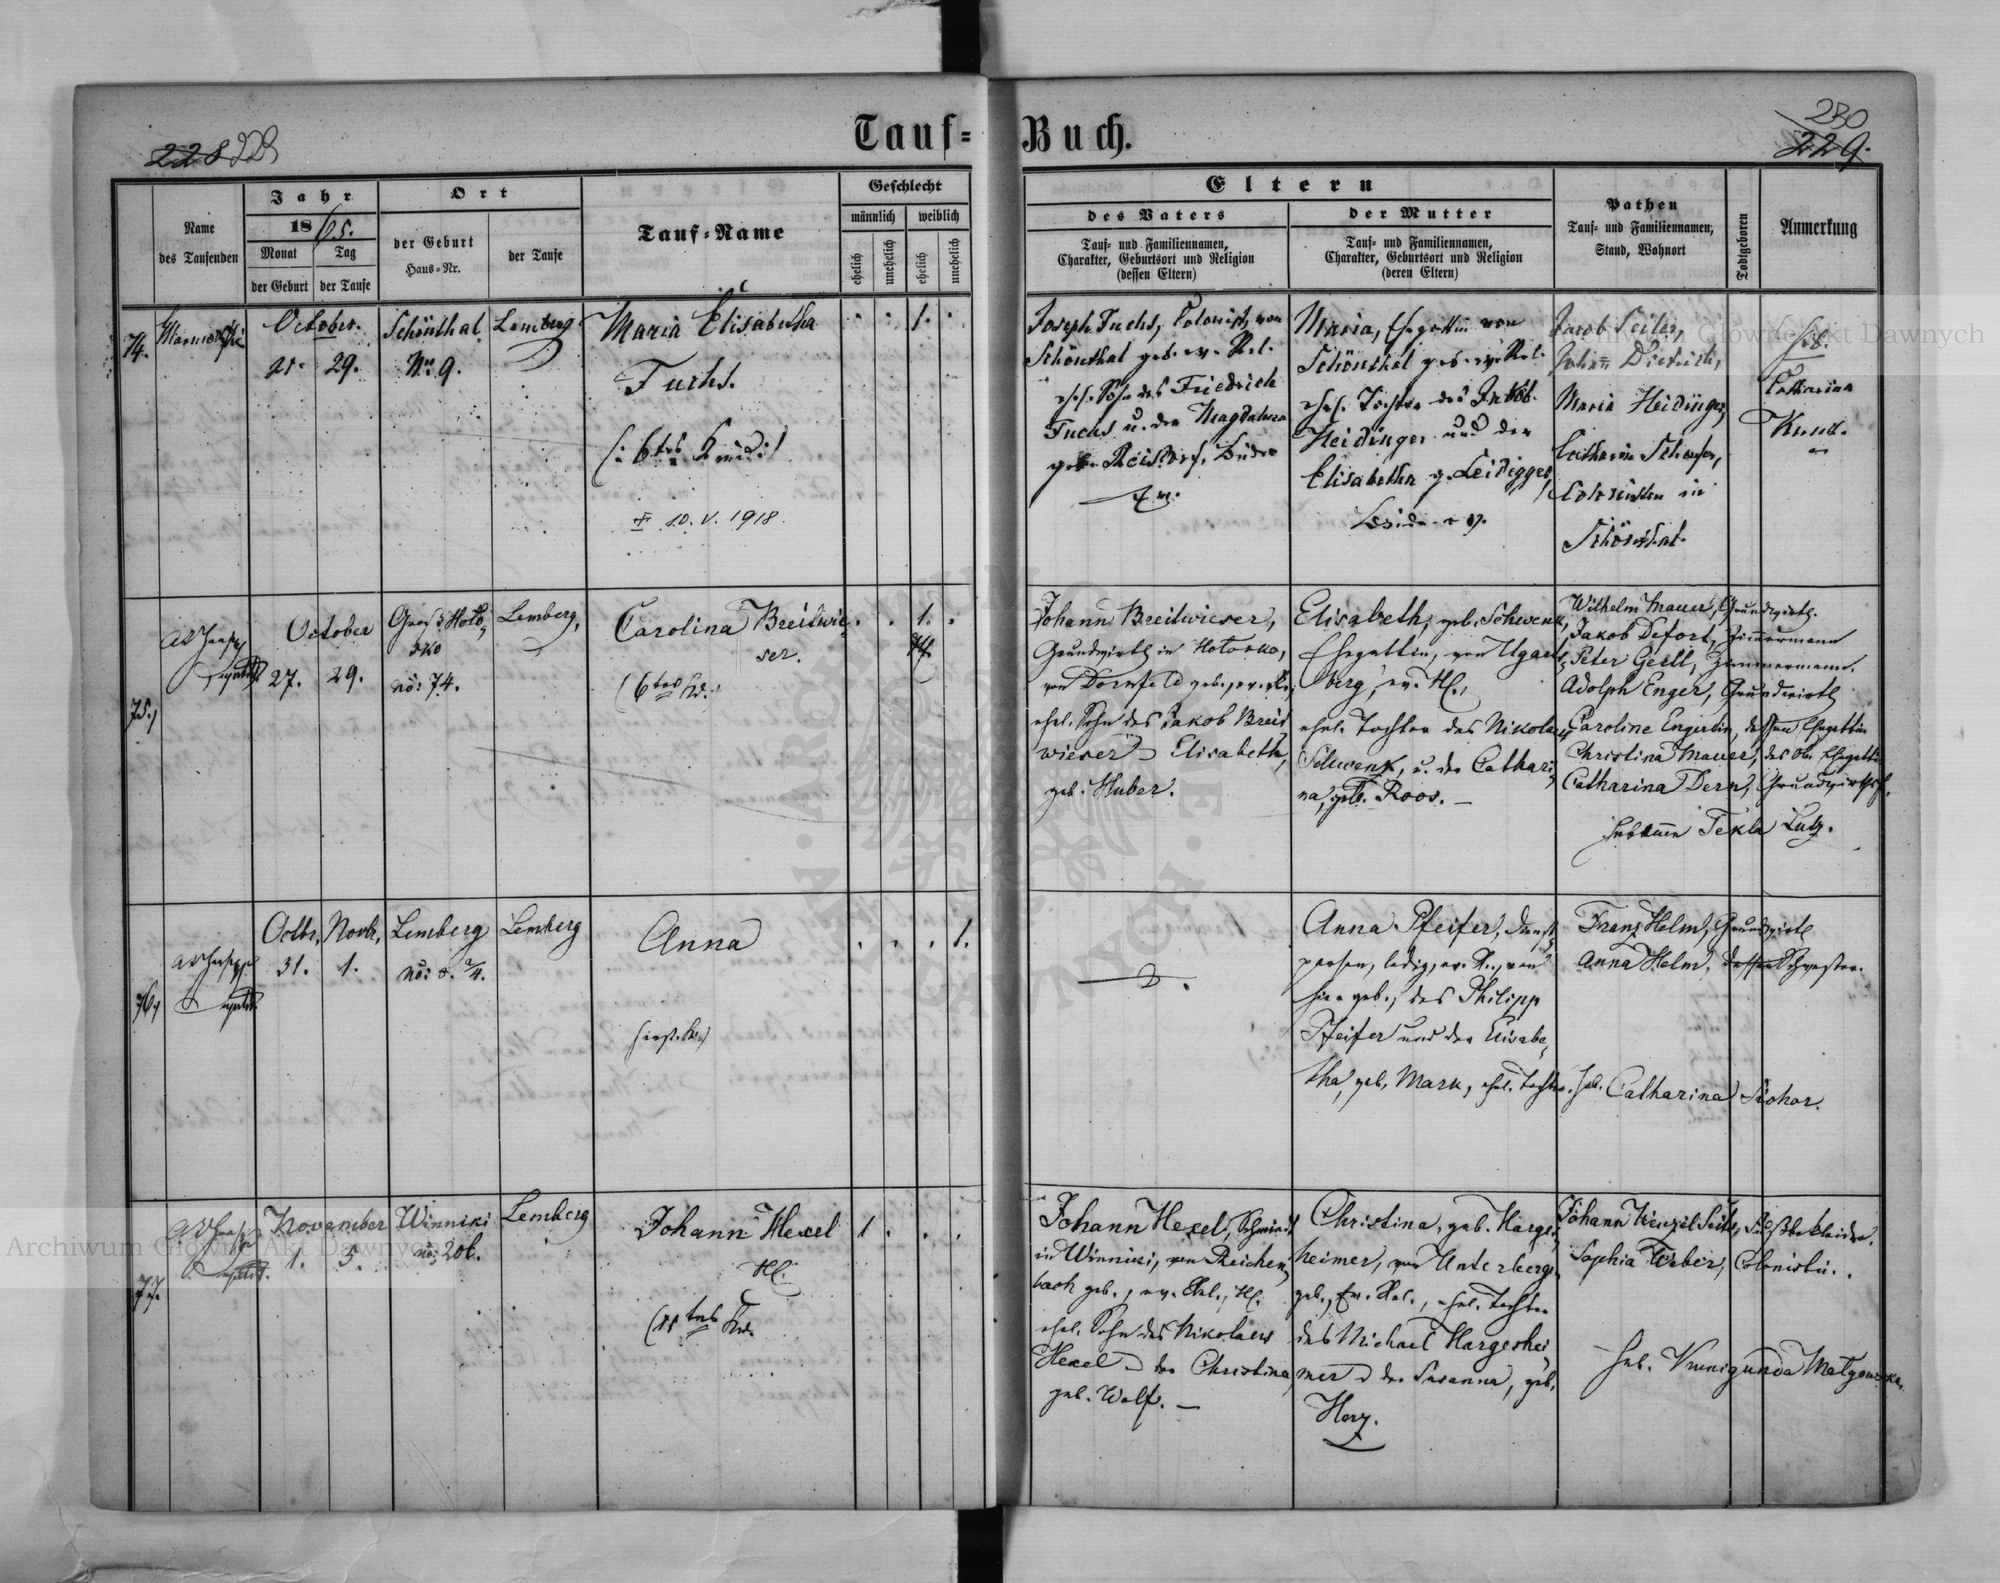 Tauf-Buch.
228
230
229.
Name des Taufenden
Jahr
1865.
Monat
Tag
der Geburt
der Taufe
Ort
der Geburt
Haus-Nr.
der Taufe
Tauf-Name
Geschlecht
männlich
weiblich
ehelich
unehelich
ehelich
unehelich
Eltern
des Vaters
Tauf- und Familiennamen,
Charakter, Geburtsort und Religion
(dessen Eltern)
der Mutter
Tauf- und Familiennamen,
Charakter, Geburtsort und Religion
(deren Eltern)
Pathen
Tauf- und Familiennamen,
Stand, Wohnort
Todtgeboren
Anmerkung
74.
October.
29.
Schönthal
No. 9.
Lemberg
Maria Elisabetha
Fuchs.
(: 6tes Kind :)
10. V. 1918.
1.
Joseph Fuchs, Colonist, von
Schönthal geb. ev. Rel.
ehel. Sohn des Friedrich
Fuchs u. der Magdalena
geb. Reisdorf, beide
ev.
Maria, Ehegattin von
Schönthal geb. ev. Rel.
ehel. Tochter des Jakob
Heidinger und der
Elisabetha g.
beide ev.
Jacob Seiler,
Johann Dietrich,
Maria Heidinger,
Catharina
Colonisten in
Schönthal.
Heb.
Catharina
Kunz.
75.,
October
27.
29.
Groß Holo-
sko
No: 74.
Lemberg,
Carolina Breitwie-
ser.
(6tes Kd.)
1.
Johann Breitwieser,
Grundwirth in Holosko,
von Dornfeld geb., ev.
ehel. Sohn des Jakob Breit-
wieser Elisabeth,
geb. Huber.
Elisabeth, geb. Schwenk,
Ehegattin, von Ugarts-
berg, ev. H.,
ehel. Tochter des Nikolaus
Schwenk, u. der Cathari-
na, geb. Roos. —
Wilhelm Mauer, Grundwirth.
Jakob Defort, Zimmermann
Peter Gesll, Zimmermann.
Adolph Enger, Grundwirth
Caroline Engerlin, dessen Ehegattin
Christina Mauer, des Ob. Ehegattin
Catharina Dern, Grundwirthsf.
Hebamme Tekla Lutz.
76,
Octbr.
31.
Novbr.
1.
Lemberg
No:
Lemberg
Anna
1.
Anna Pfeifer, Dienst-
person, ledig, ev. R., von
hier geb., des Philipp
Pfeifer und der Elisabe-
tha, geb. Mark, ehel. Tochter.
Franz Helm, Grundwirth
Anna Helm, dessen Schwester.
Heb. Catharina Sichor.
77.
November
1.
5.
Winniki
No: 206.
Lemberg
Johann Hexel
H.
1
Johann Hexel, Schmied
in Winniki, von Reichen-
bach geb., ev. Rel., H.
ehel. Sohn des Nikolaus
Hexel der Christina,
geb. Wolf. —
Christina, geb. Harges-
heimer, von Unterbergen
geb., Ev. Rel., ehel. Tochter
des Michael Hargeshei-
mer der Susanna, geb.
Herz.
Johann Wenzel Seib,
Sophia Weber, Colonistin.
Heb. Kunigunda
Archiwum Główne Akt Dawnych
Archiwum Główne Akt Dawnych